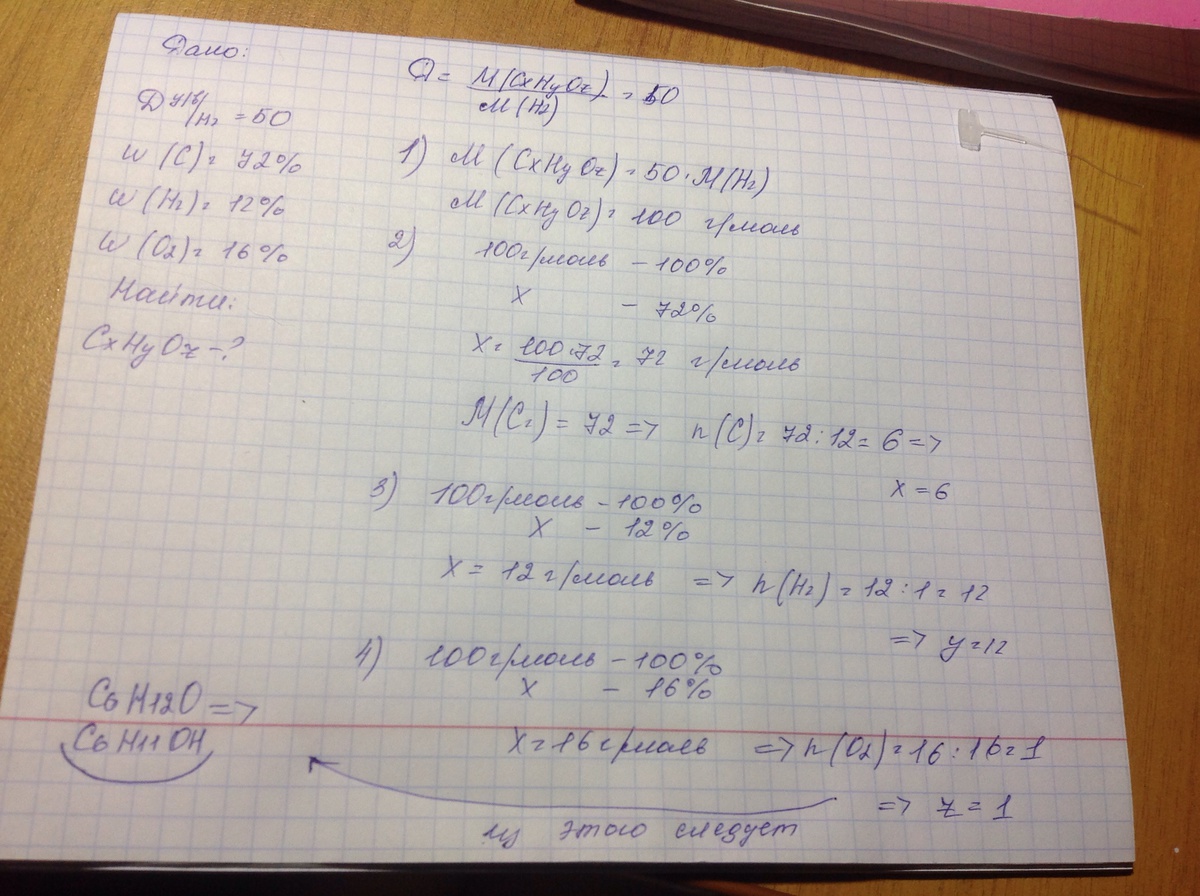 Дано:
D у/в/H2 = 50
W (C) = 72%
W (H2) = 12%
W (O2) = 16%
Найти:
CxHyOz - ?
D = M(CxHyOz) / M(H2) = 50
1) M (CxHyOz) = 50 · M(H2)
M (CxHyOz) = 100 г/моль
2) 100г/моль - 100%
x - 72%
x = 100·72 / 100 = 72 г/моль
M(C2) = 72 => n(C) = 72:12 = 6 =>
x = 6
3) 100г/моль - 100%
x - 12%
x = 12 г/моль => n(H2) = 12:1 = 12
=> y = 12
4) 100г/моль - 100%
x - 16%
x = 16 г/моль => n(O2) = 16:16 = 1
=> z = 1
из этого следует
C6H12O =>
C6H11OH